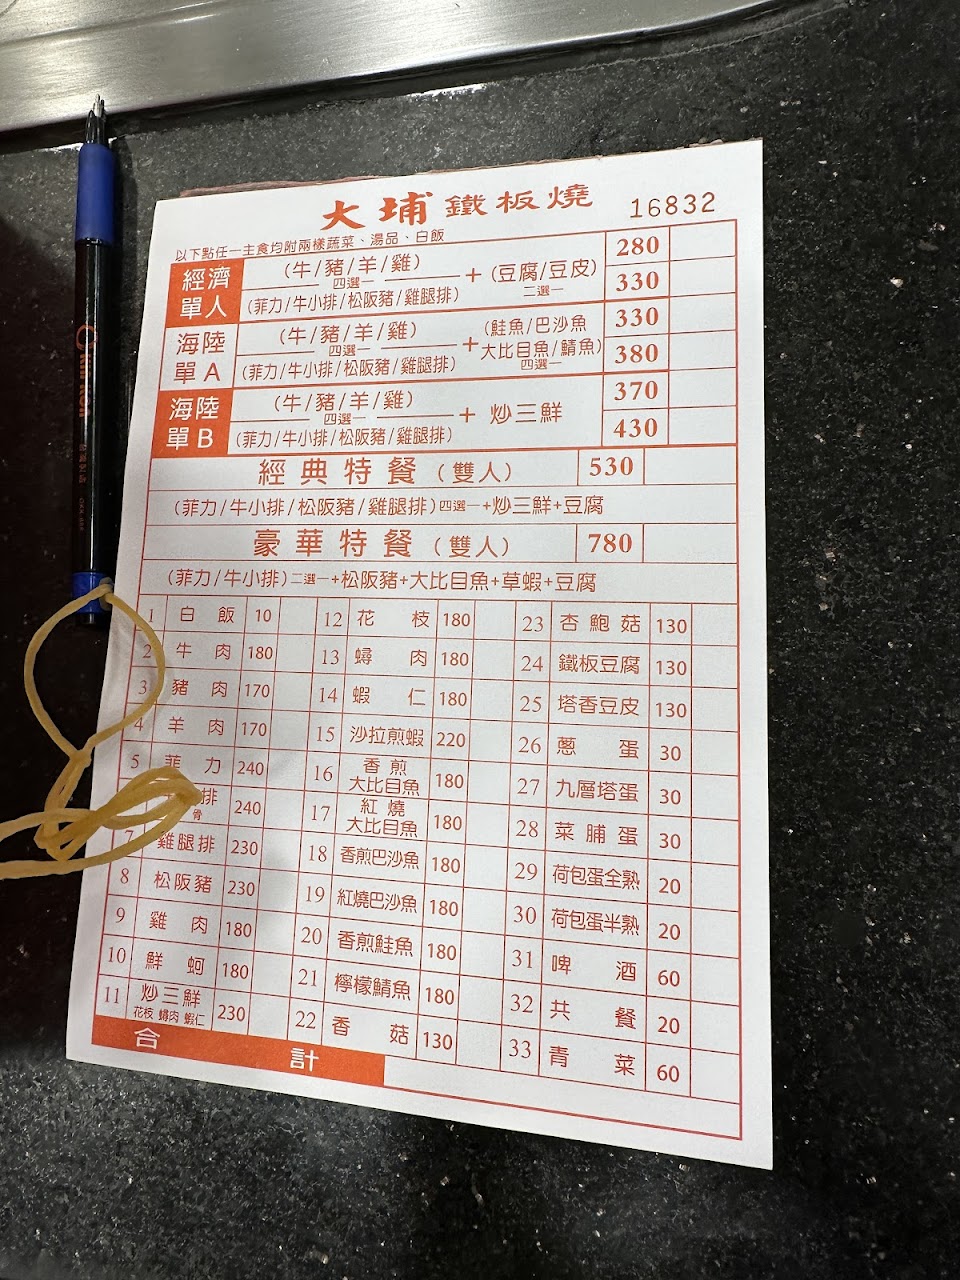 大埔鐵板燒 16832
以下點任一主食均附兩樣蔬菜、湯品、白飯
經濟單人 (牛/豬/羊/雞) 四選一 (菲力/牛小排/松阪豬/雞腿排) + (豆腐/豆皮) 二選一 280 330
海陸單A (牛/豬/羊/雞) 四選一 (菲力/牛小排/松阪豬/雞腿排) + (鮭魚/巴沙魚 大比目魚/鯖魚) 四選一 330 380
海陸單B (牛/豬/羊/雞) 四選一 (菲力/牛小排/松阪豬/雞腿排) + 炒三鮮 370 430
經典特餐(雙人) 530
(菲力/牛小排/松阪豬/雞腿排)四選一+炒三鮮+豆腐
豪華特餐(雙人) 780
(菲力/牛小排)二選一+松阪豬+大比目魚+草蝦+豆腐
1 白飯 10
2 牛肉 180
3 豬肉 170
4 羊肉 170
5 菲力 240
排 骨 240
7 雞腿排 230
8 松阪豬 230
9 雞肉 180
10 鮮蚵 180
11 炒三鮮 花枝 蟳肉 蝦仁 230
12 花枝 180
13 蟳肉 180
14 蝦仁 180
15 沙拉煎蝦 220
16 香煎大比目魚 180
17 紅燒大比目魚 180
18 香煎巴沙魚 180
19 紅燒巴沙魚 180
20 香煎鮭魚 180
21 檸檬鯖魚 180
22 香菇 130
23 杏鮑菇 130
24 鐵板豆腐 130
25 塔香豆皮 130
26 蔥蛋 30
27 九層塔蛋 30
28 菜脯蛋 30
29 荷包蛋全熟 20
30 荷包蛋半熟 20
31 啤酒 60
32 共餐 20
33 青菜 60
合計